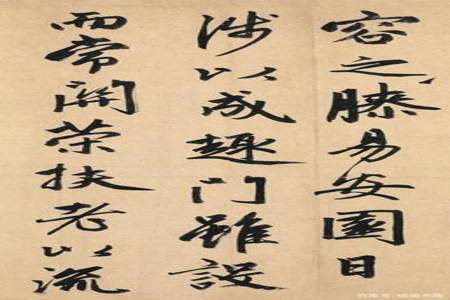 容之膝易安園日
涉以成趣門雖設
而常關策扶老以流